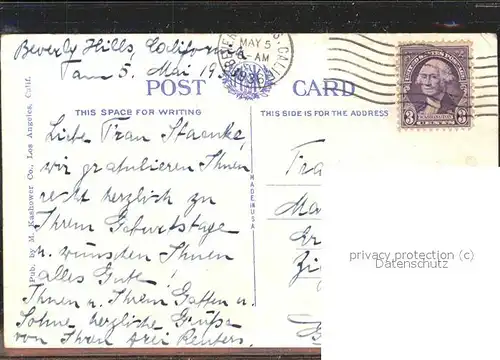 Beverly Hills, California
am 5. Mai 1936
BEVERLY HILLS, CALIF.
MAY 5
AM
1936
UNITED STATES POSTAGE
3 WASHINGTON 3
CENTS
POST CARD
THIS SPACE FOR WRITING
THIS SIDE IS FOR THE ADDRESS
Liebe Frau Staenke,
wir gratulieren Ihnen
recht herzlich zu
Ihrem Geburtstage
u. wünschen Ihnen
alles Gute!
Ihnen u. Ihrem Gatten u.
Sohne herzliche Grüße
von Ihren drei Reuters.
Pub. by M. Kashower Co., Los Angeles, Calif.
MADE IN USA
privacy protection (c)
Datenschutz